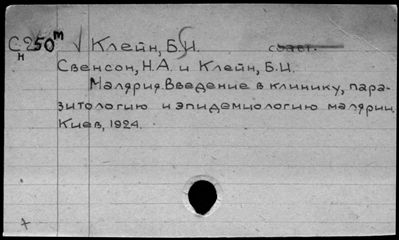 С250м √ Клейн, Б.И. соавт.
н
Свенсон, Н.А. и Клейн, Б.И.
Малярия. Введение в клинику, пара-
зитологию и эпидемиологию малярии.
Киев, 1924.